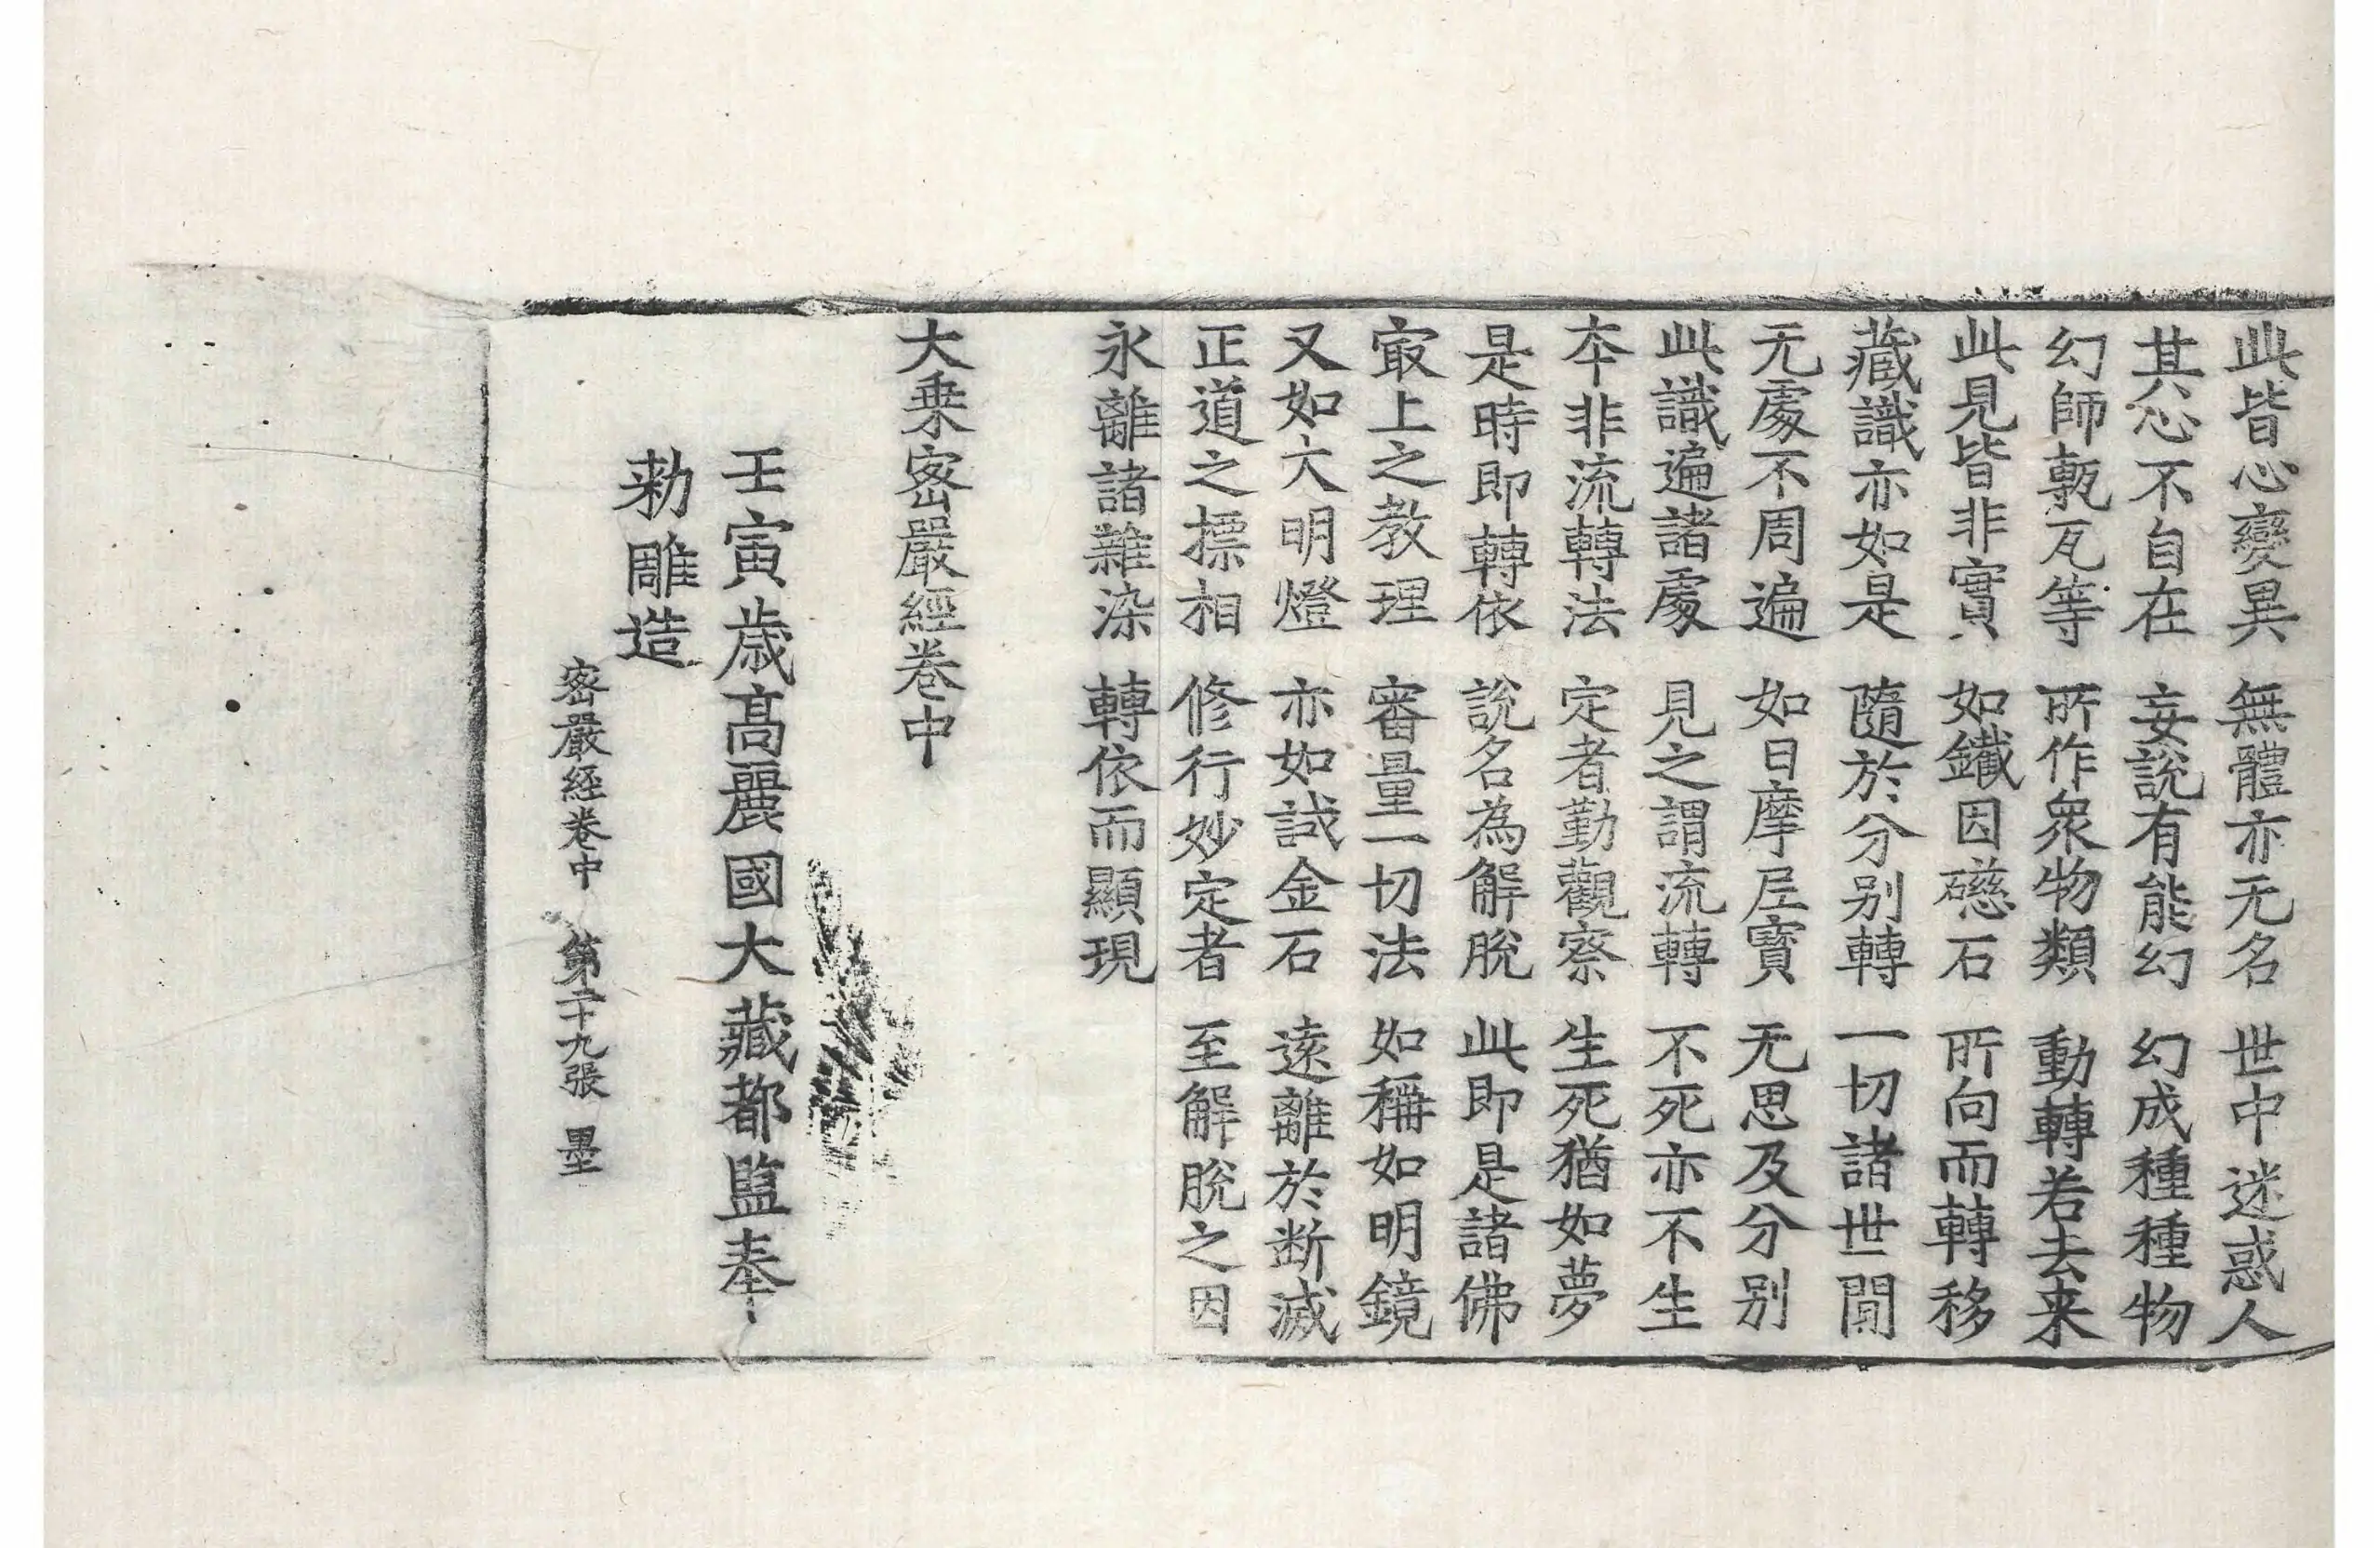 此皆心變異 無體亦无名 世中迷惑人
其心不自在 妄說有能幻 幻成種種物
幻師甎瓦等 所作衆物類 動轉若去来
此見皆非實 如鐵因磁石 所向而轉移
藏識亦如是 隨於分别轉 一切諸世間
无處不周遍 如日摩尼寶 无思及分别
此識遍諸處 見之謂流轉 不死亦不生
本非流轉法 定者勤觀察 生死猶如夢
是時即轉依 說名為解脫 此即是諸佛
冣上之教理 審量一切法 如稱如明鏡
又如大明燈 亦如試金石 遠離於斷滅
正道之摽相 修行妙定者 至解脫之因
永離諸雜染 轉依而顯現
大乗密嚴經卷中
壬寅歲髙麗國大藏都監奉
勑雕造
密嚴經卷中 第二十九張 墨